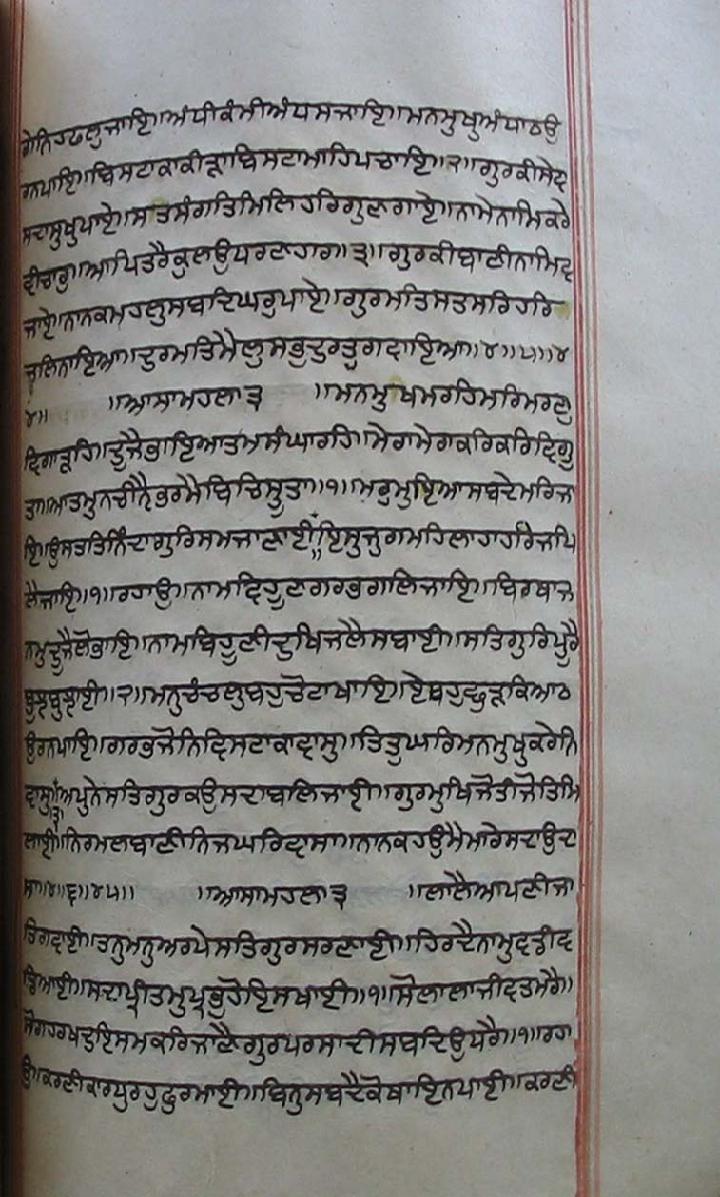 ਗੇਨਿਹਫਲੁਜਾਇ॥ਅੰਧੀਕੰਮੀਅੰਧਸਜਾਇ॥ਮਨਮੁਖੁਅੰਧਾਠਉ
ਰਨਪਾਇ॥ਬਿਸਟਾਕਾਕੀੜਾਬਿਸਟਾਮਾਹਿਪਚਾਇ॥੨॥ਗੁਰਕੀਸੇਵ
ਸਦਾਸੁਖੁਪਾਏ॥ਸਤਸੰਗਤਿਮਿਲਿਹਰਿਗੁਣਗਾਏ॥ਨਾਮੇਨਾਮਿਕਰੇ
ਵੀਚਾਰੁ॥ਆਪਿਤਰੈਕੁਲਉਧਰਣਹਾਰ॥੩॥ਗੁਰਕੀਬਾਣੀਨਾਮਿਵ
ਜਾਏ॥ਨਾਨਕਮਹਲੁਸਬਦਿਘਰੁਪਾਏ॥ਗੁਰਮਤਿਸਤਸਰਿਹਰਿ
ਜਲਿਨਾਇਆ॥ਦੁਰਮਤਿਮੈਲੁਸਭੁਦੁਰਤੁਗਵਾਇਆ॥੪॥੫॥੪
੪॥ ॥ਆਸਾਮਹਲਾ੩ ॥ਮਨਮੁਖਮਰਹਿਮਰਿਮਰਣੁ
ਵਿਗਾੜਹਿ॥ਦੂਜੈਭਾਇਆਤਮਸੰਘਾਰਹਿ॥ਮੇਰਾਮੇਰਾਕਰਿਕਰਿਵਿਗੂ
ਤਾ॥ਆਤਮੁਨਚੀਨੈੑਭਰਮੈਵਿਚਿਸੂਤਾ॥੧॥ਮਰੁਮੁਇਆਸਬਦੇਮਰਿਜਾ
ਇ॥ਉਸਤਤਿਨਿੰਦਾਗੁਰਿਸਮਜਾਣਾਈ॥ਇਸੁਜੁਗਮਹਿਲਾਹਾਹਰਿਜਪਿ
ਲੈਜਾਇ॥੧॥ਰਹਾਉ॥ਨਾਮਵਿਹੂਣਗਰਭਗਲਿਜਾਇ॥ਬਿਰਥਾਜ
ਨਮੁਦੂਜੈਲੋਭਾਇ॥ਨਾਮਬਿਹੂਣੀਦੁਖਿਜਲੈਸਬਾਈ॥ਸਤਿਗੁਰਿਪੂਰੈ
ਬੂਝਬੁਝਾਈ॥੨॥ਮਨੁਚੰਚਲੁਬਹੁਚੋਟਾਖਾਇ॥ਏਥਹੁਛੁੜਕਿਆਠ
ਉਰਨਪਾਇ॥ਗਰਭਜੋਨਿਵਿਸਟਾਕਾਵਾਸੁ॥ਤਿਤੁਘਰਿਮਨਮੁਖੁਕਰੇਨਿ
ਵਾਸੁ॥੩॥ਅਪੁਨੇਸਤਿਗੁਰਕਉਸਦਾਬਲਿਜਾਈ॥ਗੁਰਮੁਖਿਜੋਤੀਜੋਤਿਮਿ
ਲਾਈ॥ਨਿਰਮਲਬਾਣੀਨਿਜਘਰਿਵਾਸਾ॥ਨਾਨਕਹਉਮੈਮਾਰੇਸਦਾਉਦਾ
ਸਾ॥੪॥੬॥੪੫॥ ॥ਆਸਾਮਹਲਾ੩ ॥ਲਾਲੈਆਪਣੀਜਾ
ਤਿਗਵਾਈ॥ਤਨੁਮਨੁਅਰਪੇਸਤਿਗੁਰਸਰਣਾਈ॥ਹਿਰਦੈਨਾਮੁਵਡੀਵ
ਡਿਆਈ॥ਸਦਾਪ੍ਰੀਤਮੁਪ੍ਰਭੁਹੋਇਸਖਾਈ॥੧॥ਸੋਲਾਲਾਜੀਵਤਮਰੈ॥
ਸੋਗਹਰਖਦੁਇਸਮਕਰਿਜਾਣੈਗੁਰਪਰਸਾਦੀਸਬਦਿਉਧਰੈ॥੧॥ਰਹਾ
ਉ॥ਕਰਣੀਕਾਰਧੁਰਹੁਫੁਰਮਾਈ॥ਬਿਨੁਸਬਦੈਕੋਥਾਇਨਪਾਈ॥ਕਰਣੀ